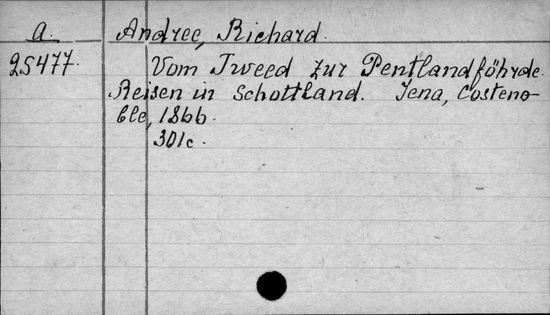 a. Andree, Richard.
25477. Vom Tweed zur Pentlandföhrde.
Reisen in Schottland. Jena, Costeno-
ble, 1866.
301c.